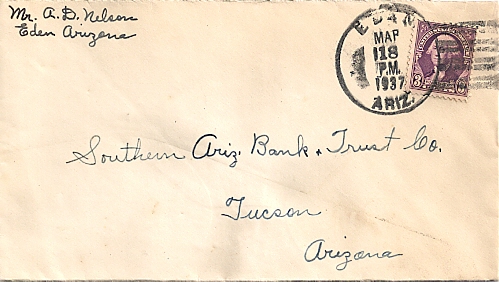 Mr. A. D. Nelson
Eden Arizona
EDEN
MAR
18
P.M.
1937
ARIZ.
3
Southern Ariz. Bank & Trust Co.
Tucson
Arizona